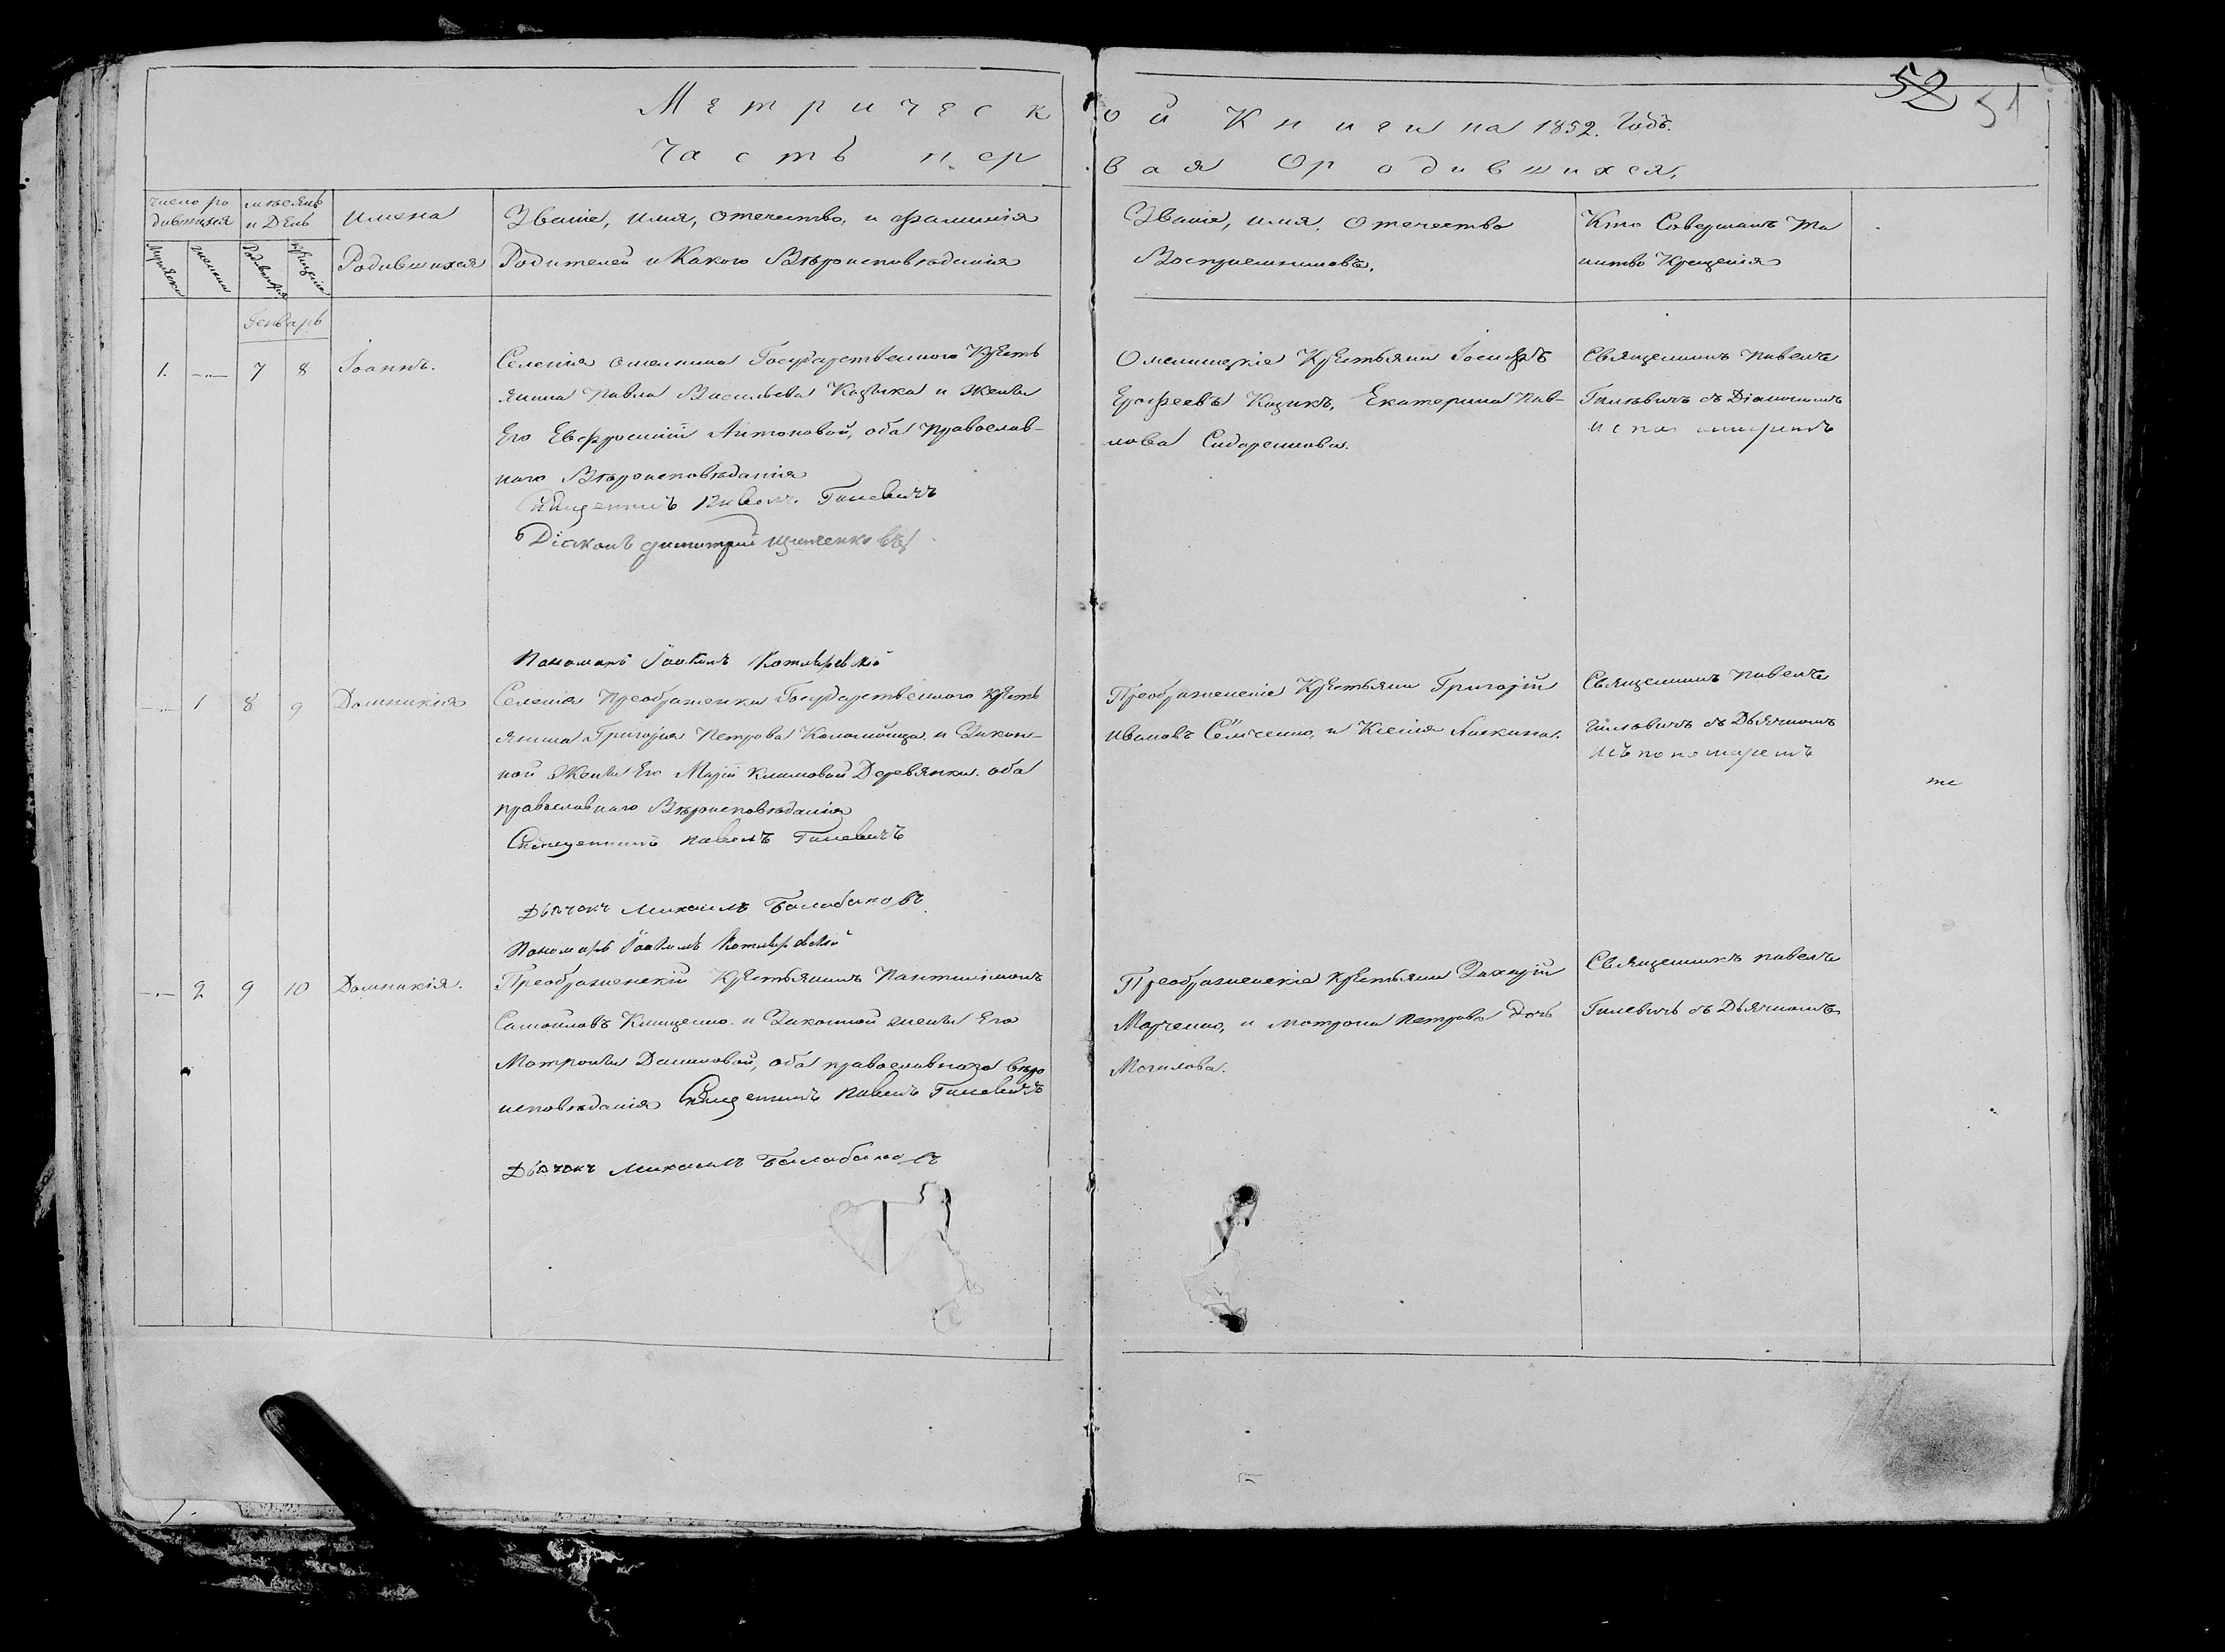 52 51
Метрической Книги на 1852. Годъ.
Часть первая О родившихся,
Число ро
дившихся
мѣсяцъ
и День
Имена
Родившихся
Званіе, имя, отечество, и фамилія
Родителей и Какого Вѣроисповѣданія
Званіе, имя, отечество
Воспріемниковъ,
Кто Совершалъ Та
инство Крещенія
Мужеска
женска
Рожденія
Крещенія
Генварь
1. — 7 8 Іоаннъ.
Селенія Омельника Государственного Кресть
янина Павла Васильева Козика и жены
Его Евфросиніи Антоновой, оба Православ-
наго Вѣроисповѣданія
Священникъ Павелъ Гилевичъ
Діаконъ Димитрій
Пономарь Іоакимъ Котляревскій
Омельницкіе Крестьяни Іосифъ
Ерофеевъ Козикъ, Екатерина Пав-
лова Сидоренкова.
Священникъ Павелъ
Гилѣвичъ съ Діакономъ
и пономаремъ
— 1 8 9 Домникія
Селенія Преображенки Государственного Кресть
янина Григорія Петрова Коломойца и Закон-
ной жены Его Маріи Климовой Деревянки. оба
православнаго Вѣроисповѣданія
Священникъ Павелъ Гилевичъ
Дьячокъ Михаилъ Балабановъ
Пономарь Іоакимъ Котляревскій
Преображенскіе Крестьяни Григорій
Ивановъ Семченко, и Ксенія
Священникъ Павелъ
Гилѣвичъ съ Дьячкомъ
и пономаремъ
— 2 9 10 Домникія.
Преображенскій Крестьянинъ Пантилімонъ
Самойловъ Клищенко. и Законной жены Его
Матроны Даниловой, оба православнаго вѣро
исповѣданія Священникъ Павелъ Гилевичъ
Дьячокъ Михаилъ Балабановъ
Преображенскіе Крестьяни Захарій
Марченко, и Матрона Петрова Дочь
Могилова.
Священникъ Павелъ
Гилевичъ съ Дьячкомъ